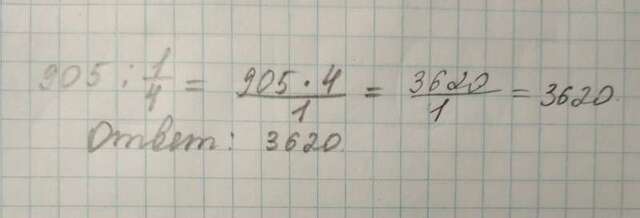 905 : 1/4 = 905 · 4/1 = 3620/1 = 3620.
Ответ: 3620.